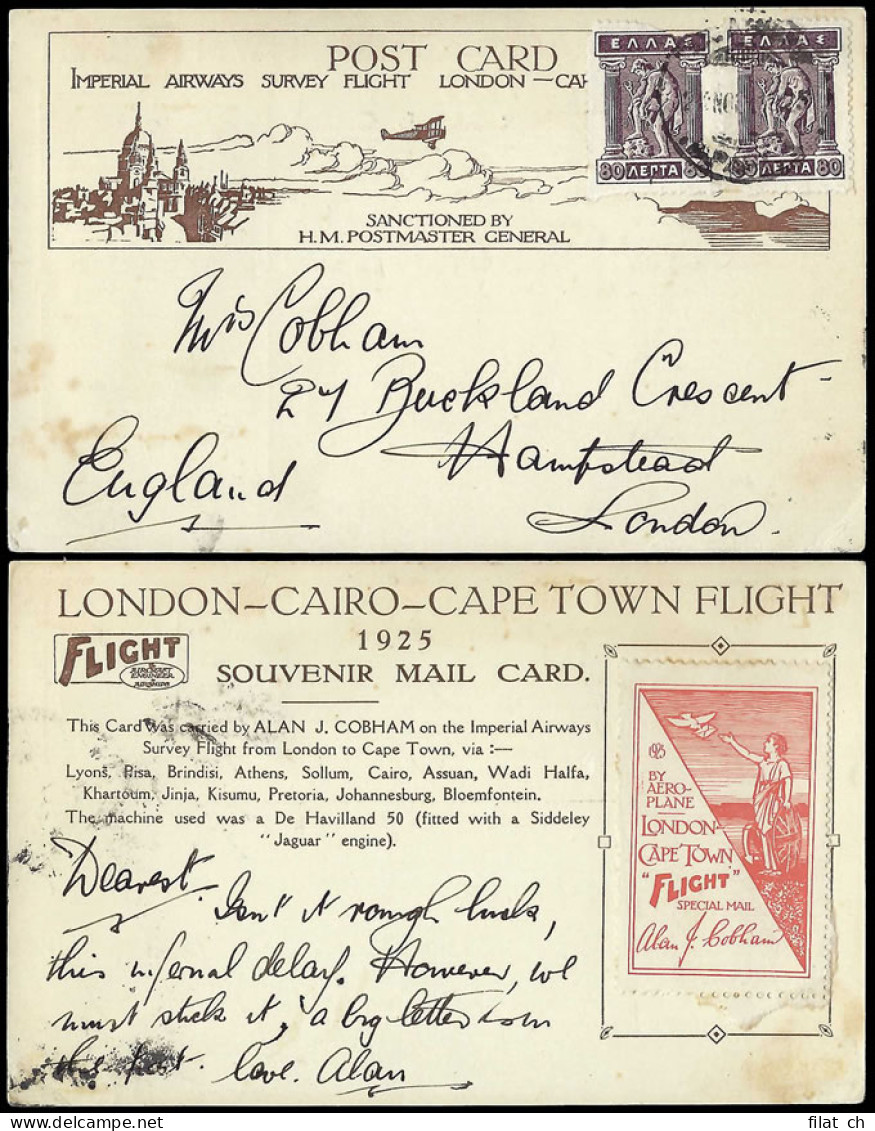 POST CARD
IMPERIAL AIRWAYS SURVEY FLIGHT LONDON—CA
ΕΛΛΑΣ
ΕΛΛΑΣ
80 ΛΕΠΤΑ 80
80 ΛΕΠΤΑ 80
SANCTIONED BY
H.M. POSTMASTER GENERAL
Mrs Cobham
Buckland Crescent
Hampstead
England
London.
LONDON—CAIRO—CAPE TOWN FLIGHT
1925
FLIGHT
SOUVENIR MAIL CARD.
This Card was carried by ALAN J. COBHAM on the Imperial Airways
Survey Flight from London to Cape Town, via :—
Lyons, Pisa, Brindisi, Athens, Sollum, Cairo, Assuan, Wadi Halfa,
Khartoum, Jinja, Kisumu, Pretoria, Johannesburg, Bloemfontein.
The machine used was a De Havilland 50 (fitted with a Siddeley
"Jaguar" engine).
1925
BY
AERO-
PLANE
LONDON-
CAPE TOWN
"FLIGHT"
SPECIAL MAIL
Alan J. Cobham
Dearest
Isn't it rough luck,
this infernal delay. However, we
must stick it, a big letter
this post. love. Alan
filat ch